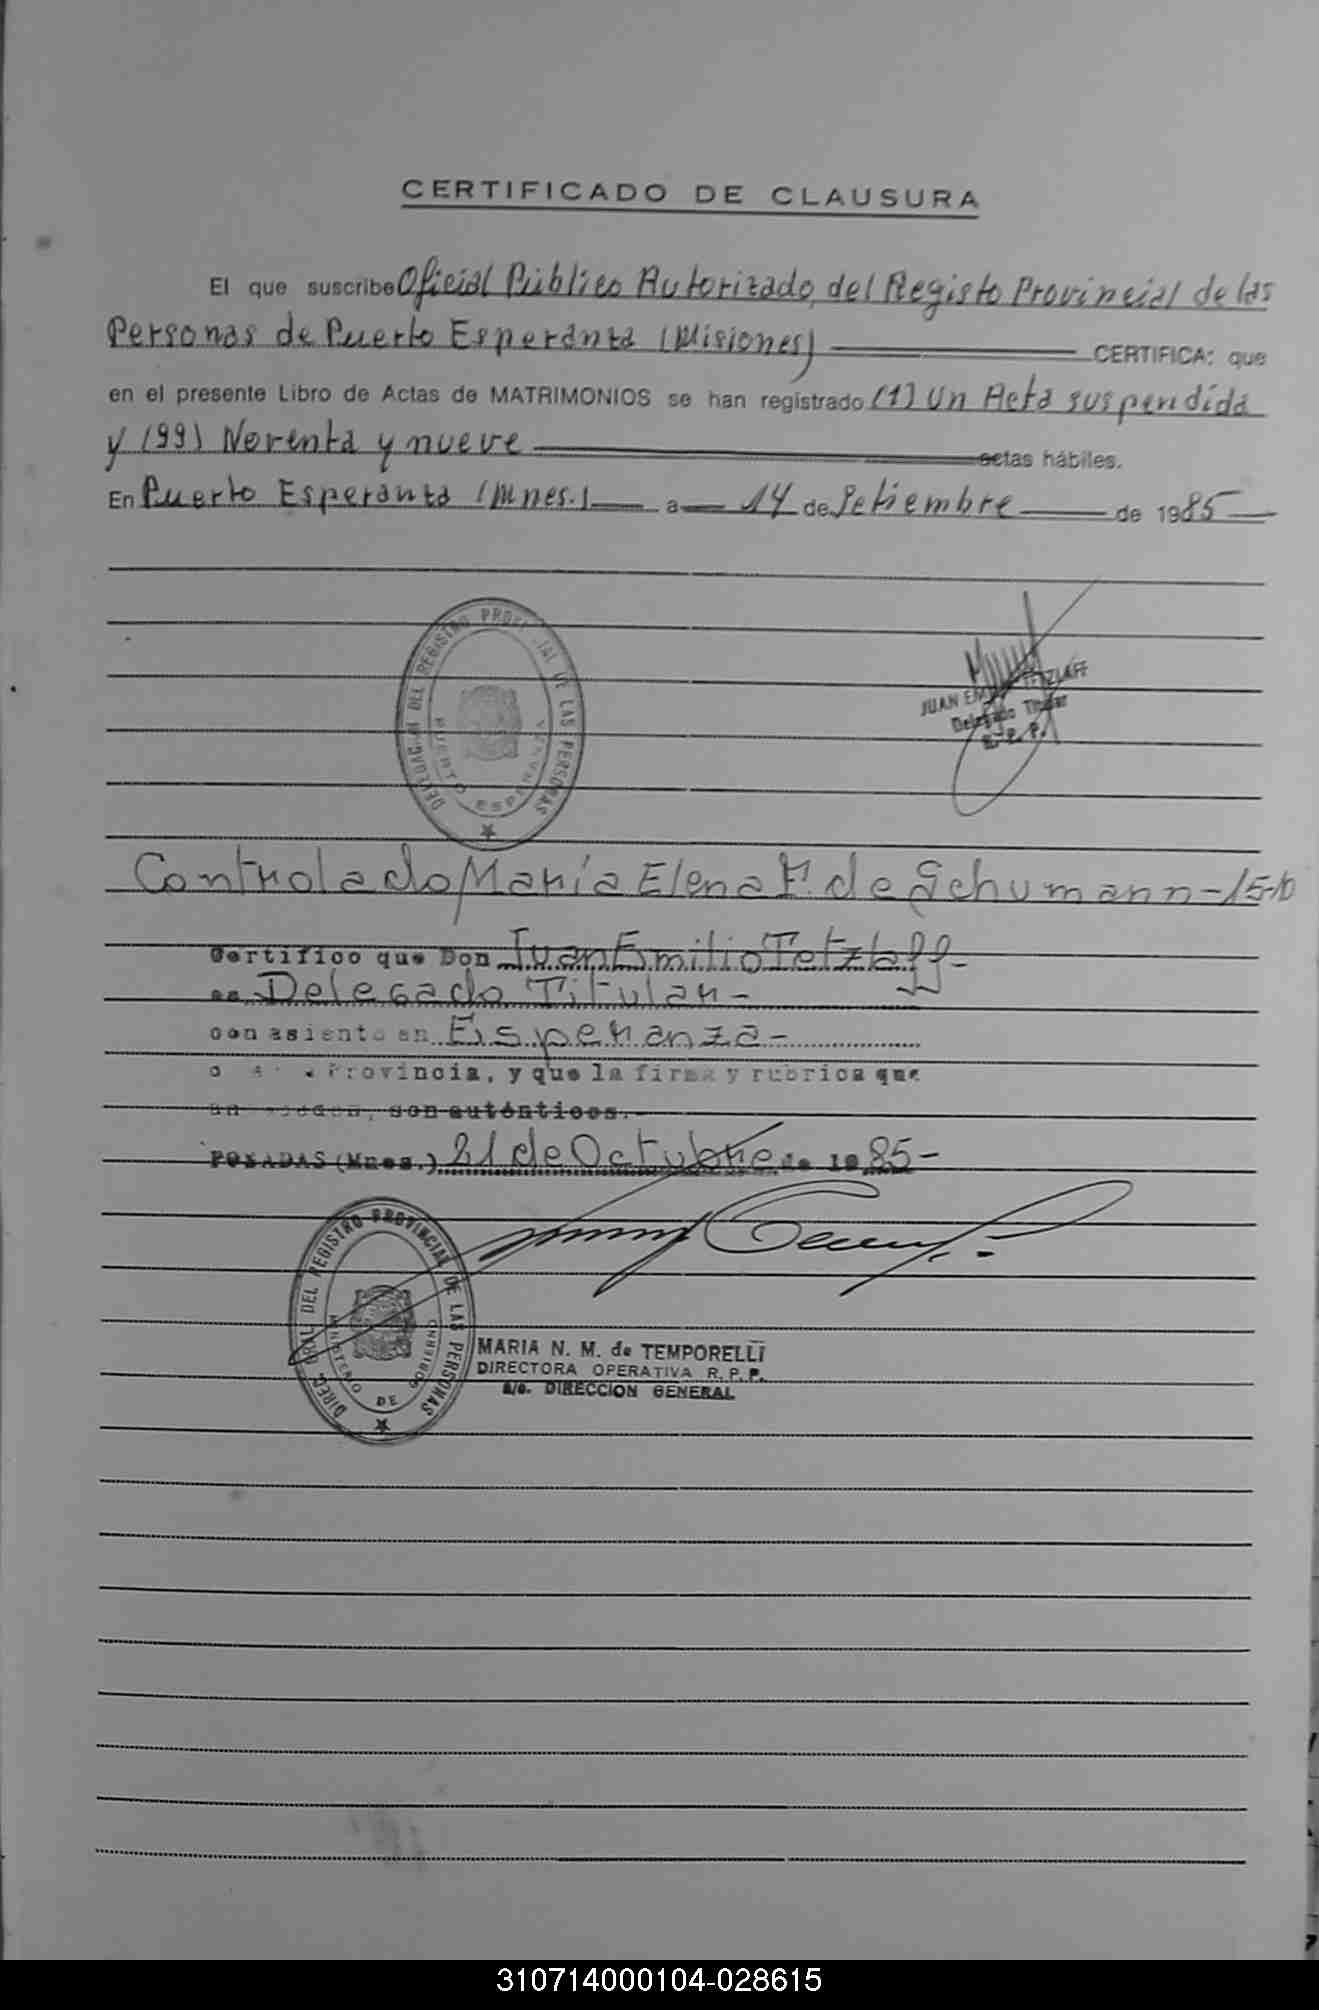 CERTIFICADO DE CLAUSURA
El que suscribe Oficial Público Autorizado, del Registo Provincial de las
Personas de Puerto Esperanza (Misiones) CERTIFICA: que
en el presente Libro de Actas de MATRIMONIOS se han registrado (1) Un Acta suspendida
y (99) Noventa y nueve actas hábiles.
En Puerto Esperanza (Mnes.) a 14 de Setiembre de 1985
DELEGACION DEL REGISTRO PROVINCIAL DE LAS PERSONAS
PUERTO ESPERANZA
JUAN EMILIO TETZLAFF
Delegado Titular
R. P. P.
Controlado María Elena F. de Schumann - 15-10
Certifico que Don Juan Emilio Tetzlaff -
es Delegado Titular -
con asiento en Esperanza -
Provincia, y que la firma y rubrica que
son auténticos.
POSADAS (Mnes.) 21 de Octubre de 1985 -
DIREC. GRAL. DEL REGISTRO PROVINCIAL DE LAS PERSONAS
MINISTERIO DE GOBIERNO
MARIA N. M. de TEMPORELLI
DIRECTORA OPERATIVA R. P. P.
a/c. DIRECCION GENERAL
310714000104-028615